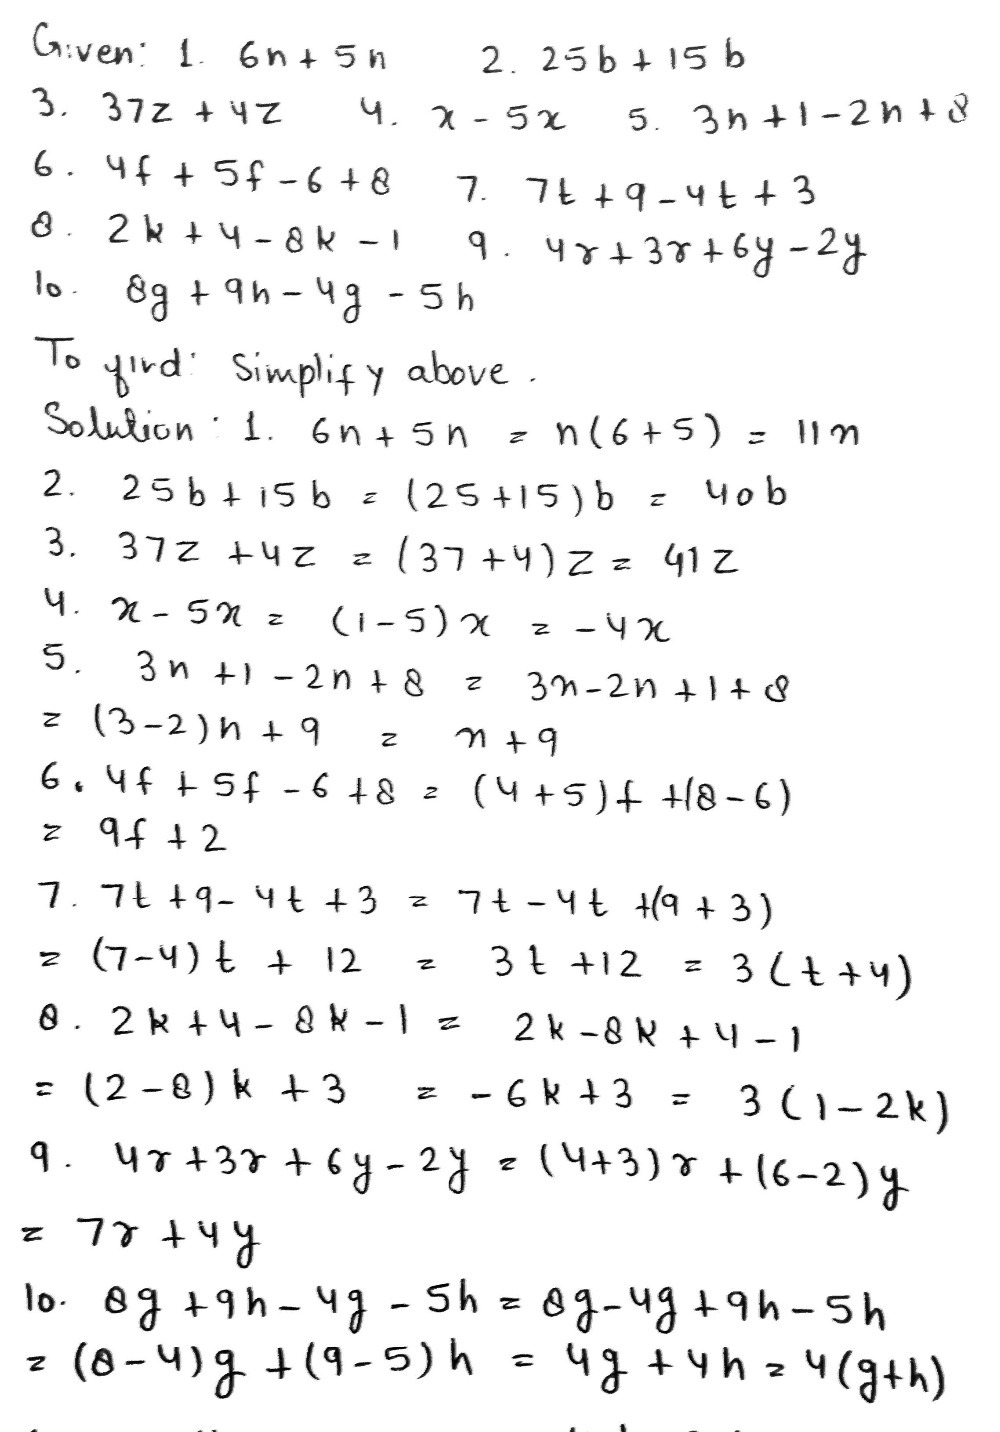 Given: 1. 6n + 5n 2. 25b + 15b
3. 37z + 4z 4. x - 5x 5. 3n + 1 - 2n + 8
6. 4f + 5f - 6 + 8 7. 7t + 9 - 4t + 3
8. 2k + 4 - 8k - 1 9. 4r + 3r + 6y - 2y
10. 8g + 9h - 4g - 5h
To find: Simplify above.
Solution: 1. 6n + 5n = n(6+5) = 11n
2. 25b + 15b = (25+15)b = 40b
3. 37z + 4z = (37+4)z = 41z
4. x - 5x = (1-5)x = -4x
5. 3n + 1 - 2n + 8 = 3n - 2n + 1 + 8
= (3-2)n + 9 = n + 9
6. 4f + 5f - 6 + 8 = (4+5)f + (8-6)
= 9f + 2
7. 7t + 9 - 4t + 3 = 7t - 4t + (9+3)
= (7-4)t + 12 = 3t + 12 = 3(t+4)
8. 2k + 4 - 8k - 1 = 2k - 8k + 4 - 1
= (2-8)k + 3 = -6k + 3 = 3(1-2k)
9. 4r + 3r + 6y - 2y = (4+3)r + (6-2)y
= 7r + 4y
10. 8g + 9h - 4g - 5h = 8g - 4g + 9h - 5h
= (8-4)g + (9-5)h = 4g + 4h = 4(g+h)